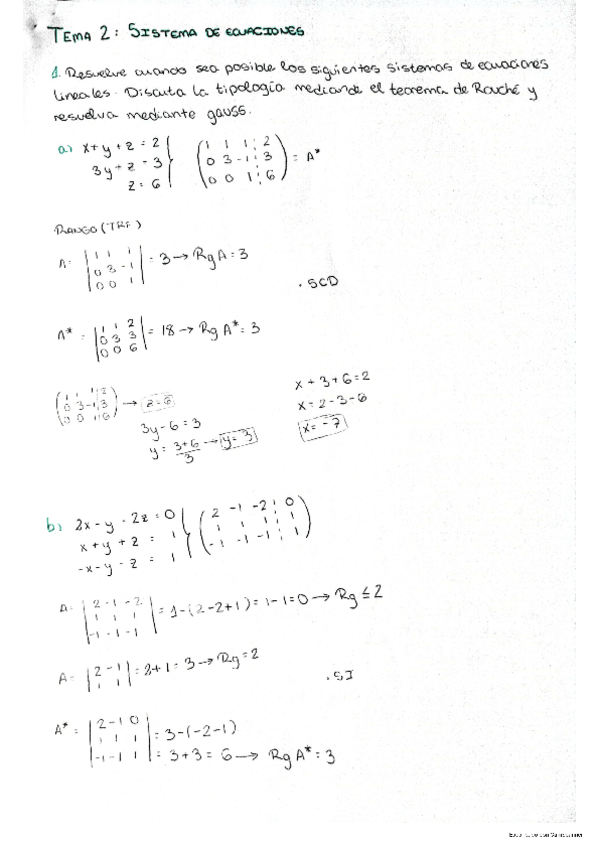 TEMA 2: SISTEMA DE ECUACIONES
1. Resuelve cuando sea posible los siguientes sistemas de ecuaciones
lineales. Discuta la tipología mediande el teorema de Rouché y
resuelva mediante gauss.
a) x+y+z=2
3y-z=3
z=6
1 1 1 2
0 3 -1 3 = A*
0 0 1 6
RANGO
A = |1 1 1
0 3 -1
0 0 1| = 3 → Rg A = 3
. SCD
A* = |1 1 2
0 3 3
0 0 6| = 18 → Rg A* = 3
1 1 1 2
0 3 -1 3 → z=6
0 0 1 6
3y-6=3
y = 3+6/3 → y=3
x+3+6=2
x=2-3-6
x=-7
b) 2x-y-2z=0
x+y+z=1
-x-y-z=1
2 -1 -2 0
1 1 1 1
-1 -1 -1 1
A = |2 -1 -2
1 1 1
-1 -1 -1| = 1-(2-2+1) = 1-1=0 → Rg ≤ 2
A = |2 -1
1 1| = 2+1 = 3 → Rg = 2
. SI
A* = |2 -1 0
1 1 1
-1 -1 1| = 3-(-2-1)
= 3+3 = 6 → Rg A* = 3